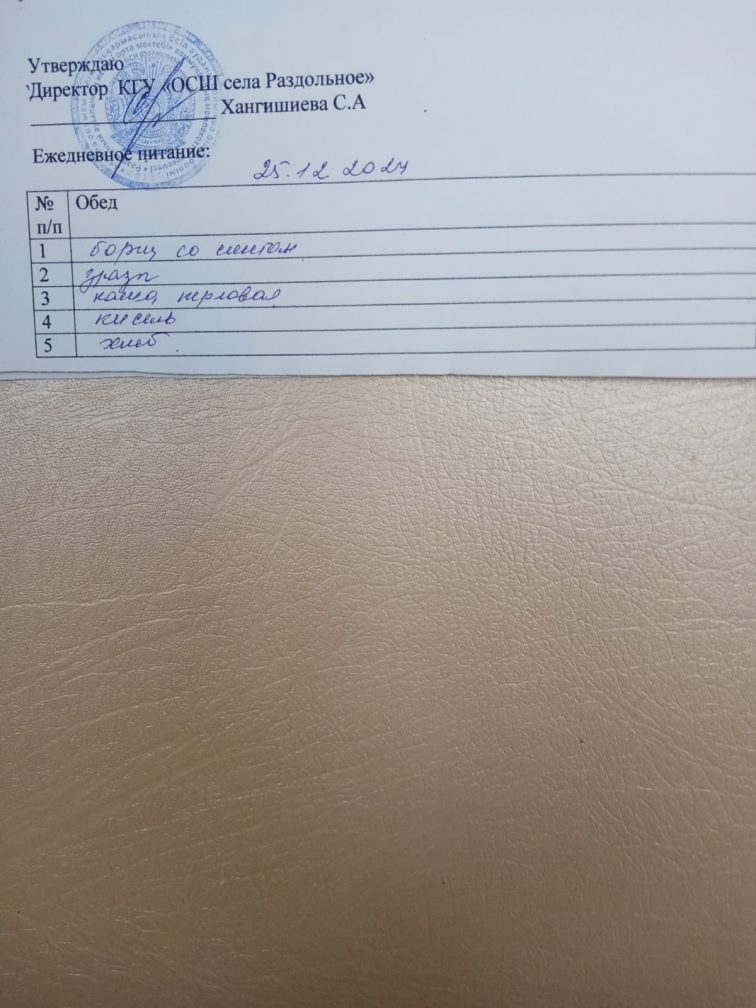 Утверждаю
Директор КГУ «ОСШ села Раздольное»
Хангишиева С.А
Ежедневное питание:
25.12 2024
№ п/п Обед
1 борщ со
2 зразы
3 каша перловая
4 кисель
5 хлеб